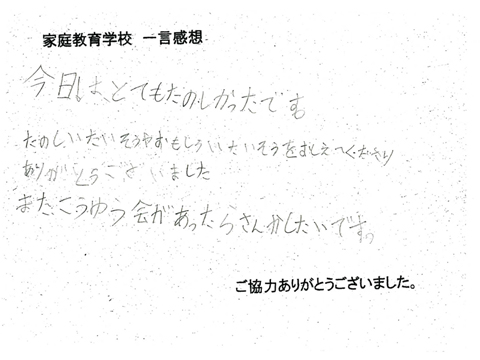 家庭教育学校　一言感想
今日は、とてもたのしかったです
たのしいたいそうやおもしろいたいそうをおしえてくださり
ありがとうございました
また、こうゆう会があったらさんかしたいです。
ご協力ありがとうございました。